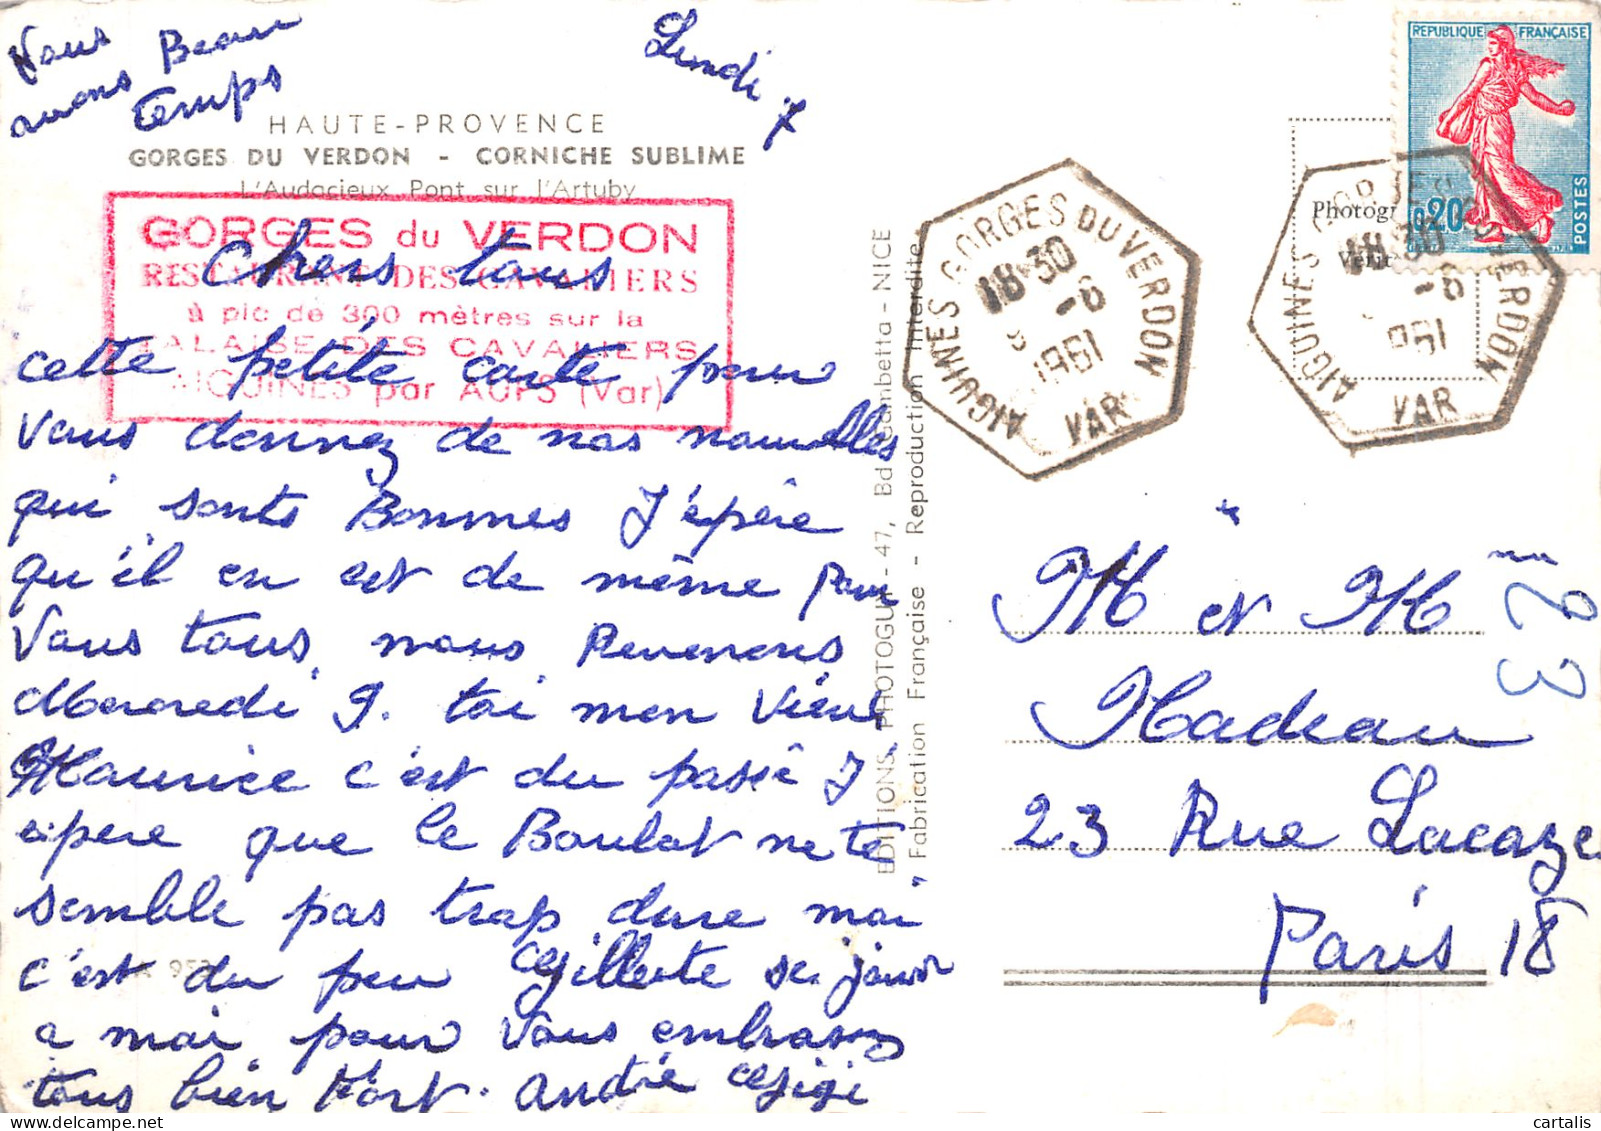 Vous
avons Beau
temps
Lundi 7
HAUTE-PROVENCE
GORGES DU VERDON - CORNICHE SUBLIME
L'Audacieux Pont sur l'Artuby
GORGES du VERDON
RESTAURANT DES CAVALIERS
à pic de 300 mètres sur la
FALAISE DES CAVALIERS
AIGUINES par AUPS (Var)
Chers tous
cette petite carte pour
Vous donnez de nos nouvelles
qui sonts Bonnes J'épère
qu'il en est de même pour
Vous tous, nous Revenons
Mercredi 9. toi mon Vieux
Maurice c'est du passé J
épere que le Boulot ne te
semble pas trop dure moi
c'est du peu
se jour
a moi pour Vous embrasser
tous bien fort. André Gigi
EDITIONS, PHOTOGUY - 47, Bd Gambetta - NICE
" Fabrication Française - Reproduction Interdite
REPUBLIQUE FRANÇAISE
0,20
POSTES
AIGUINES GORGES DU VERDON
18-30
-6
1961
VAR
AIGUINES GORGES DU VERDON
18-30
-6
1961
VAR
Photogr
Vérit
M et M
Nadeau
23 Rue Lacaze
Paris 18
23
cartalis